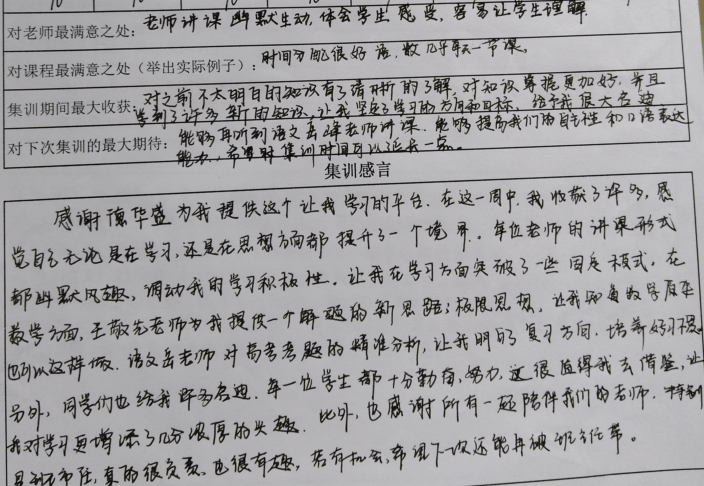 对老师最满意之处：老师讲课幽默生动，体会学生感受，容易让学生理解
对课程最满意之处（举出实际例子）：时间分配很好 语，数几乎每天一节课。
集训期间最大收获：对之前不太明白的知识有了清晰的了解，对知识掌握更加好，并且
学到了许多新的知识，让我坚定了学习的方向和目标，给予我很大启迪
对下次集训的最大期待：能够再听到语文岳峰老师讲课，能够提高我们的自主性和口语表达
能力，希望时集训时间可以延长一点。
集训感言
感谢德华盛为我提供这个让我学习的平台。在这一周中，我收获了许多，感
觉自己无论是在学习，还是在思想方面都提升了一个境界。每位老师的讲课形式
都幽默风趣，调动我的学习积极性。让我在学习方面突破了一些固定模式。在
数学方面，王敬先老师为我提供一个解题的新思路：极限思想，让我知道数学原来
也可以这样做。语文岳老师对高考考题的精准分析，让我明白了复习方向，培养好习惯。
另外，同学们也给我许多启迪。每一位学生都十分勤奋，努力，这很值得我去借鉴，让
我对学习更增添了几分浓厚的兴趣。此外，也感谢所有一起陪伴我们的老师。特别
是班主任，真的很负责，也很有趣，若有机会，希望下一次还能再被班主任带。